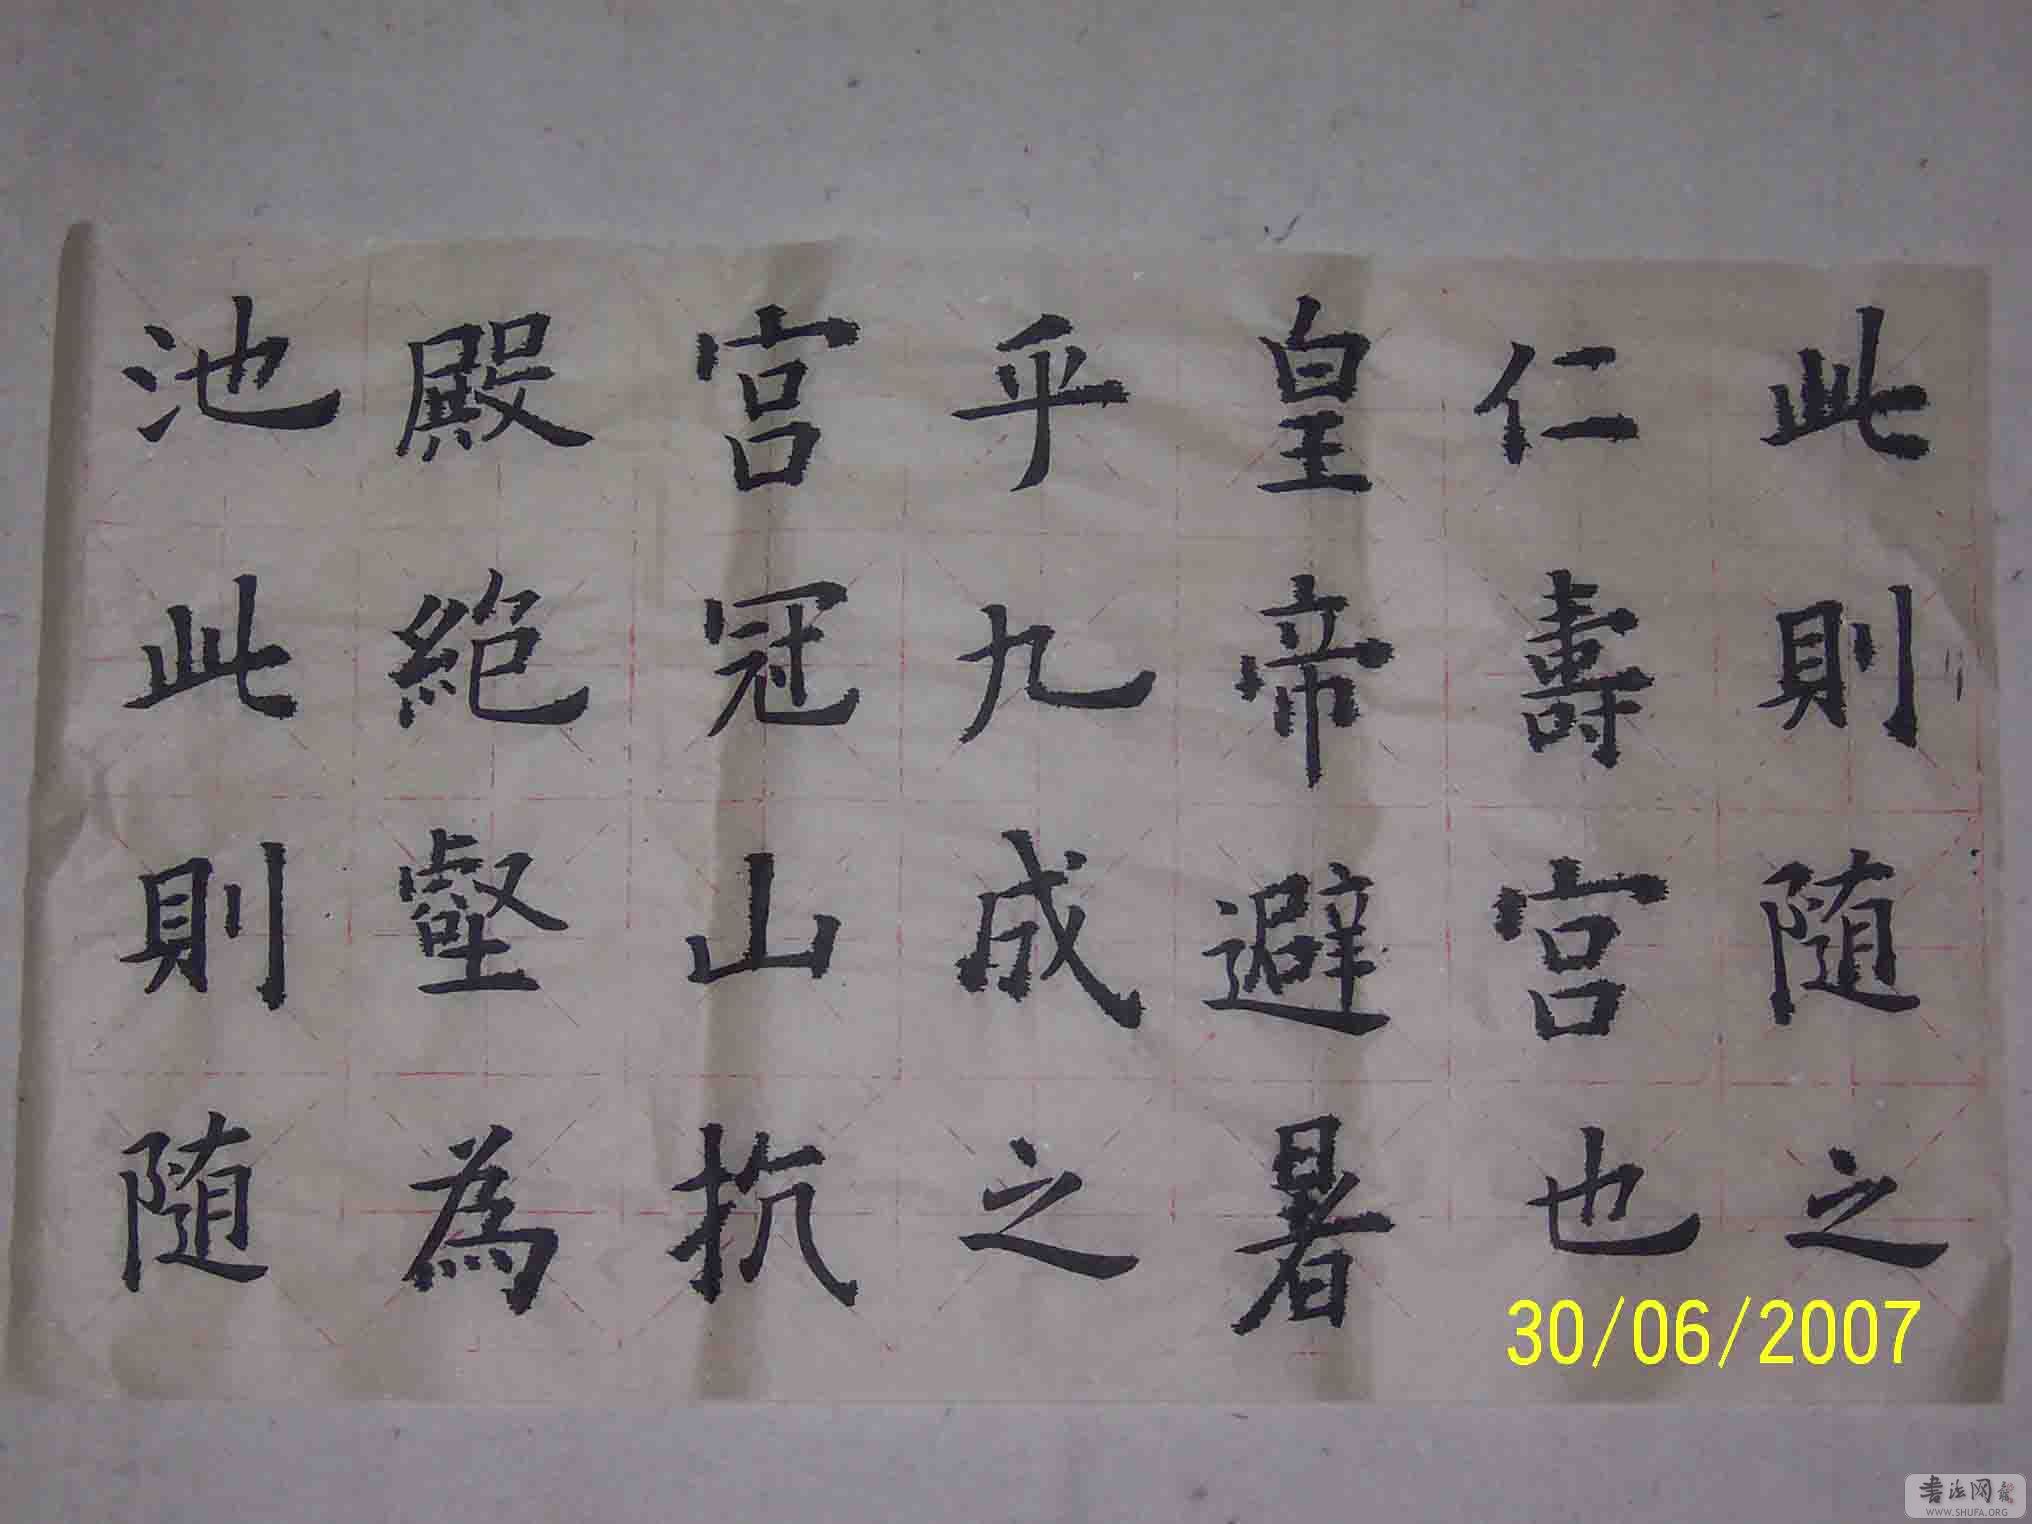 此則随之
仁壽宮也
皇帝避暑
乎九成之
宮冠山抗
殿絶壑為
池此則随
30/06/2007
书法网
WWW.SHUFA.ORG